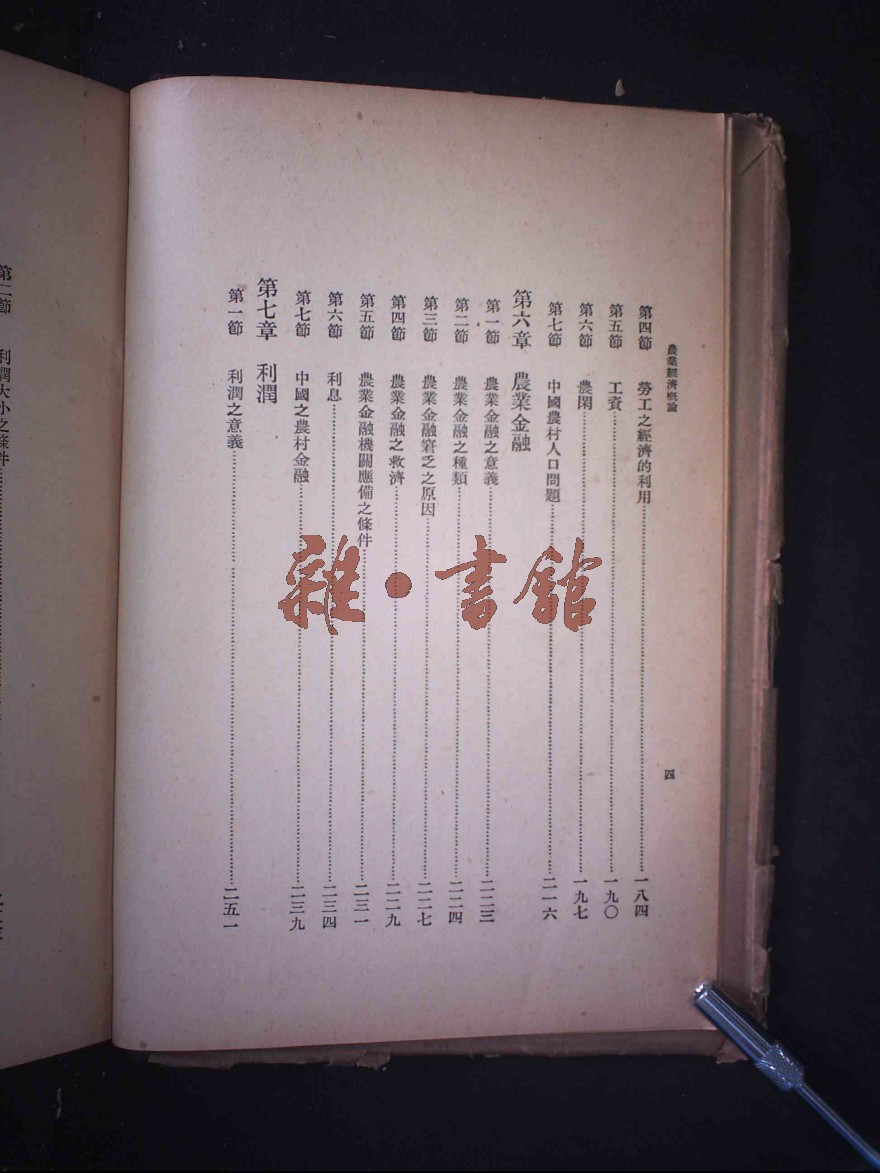 農業經濟概論
四
第四節 勞工之經濟的利用……一八四
第五節 工資……一九〇
第六節 農閑……一九七
第七節 中國農村人口問題……二一六
第六章 農業金融
第一節 農業金融之意義……二二三
第二節 農業金融之種類……二二四
第三節 農業金融窘乏之原因……二二七
第四節 農業金融之救濟……二二九
第五節 農業金融機關應備之條件……二三一
第六節 利息……二三四
第七節 中國之農村金融……二三九
第七章 利潤
第一節 利潤之意義……二五一
第二節 利潤大小之條件
雜·書館